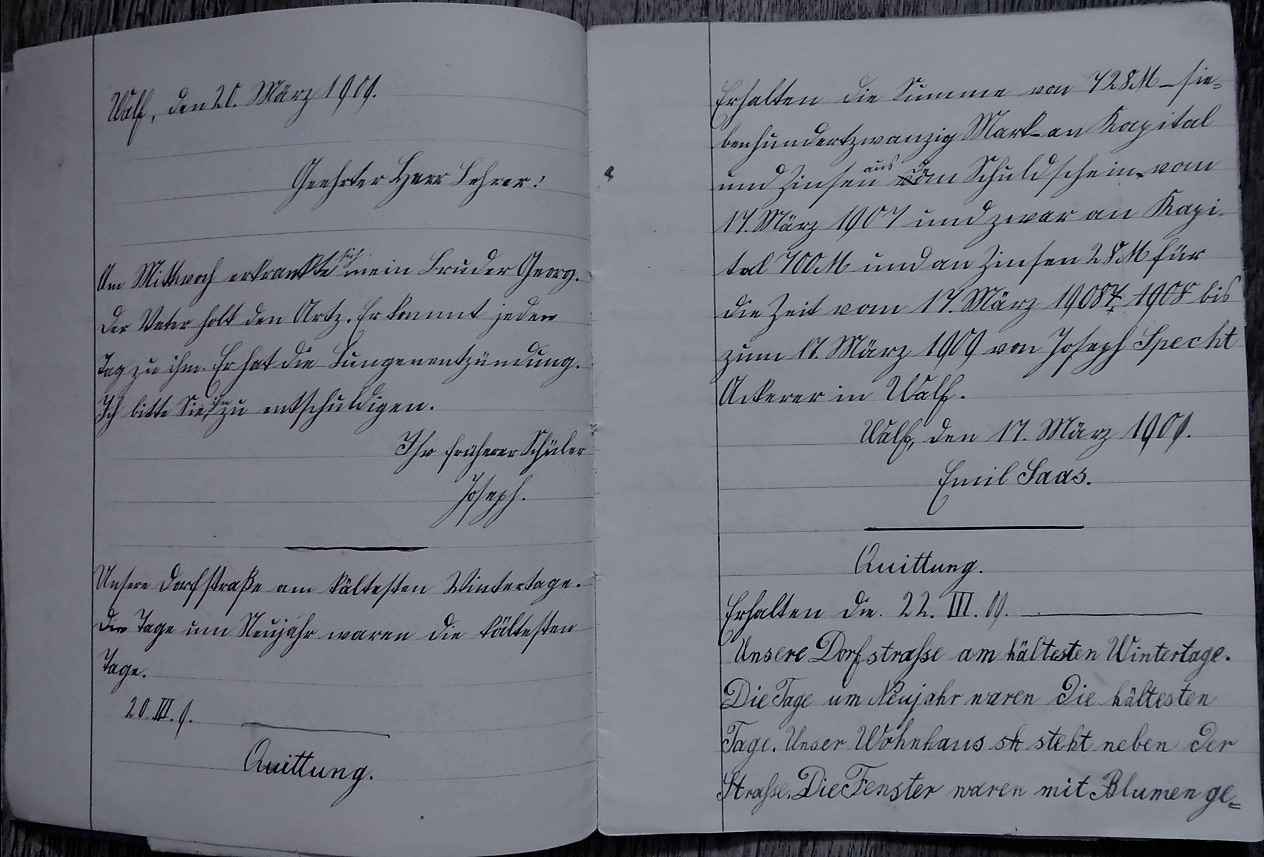 Walf, den 20. März 1909.
Geehrter Herr Lehrer!
Am Mittwoch erkrankte sich mein Bruder Georg.
Der Vater holt den Artz. Er kommt jeden
Tag zu ihm. Er hat die Lungenentzündung.
Ich bitte Sie ihn zu entschuldigen.
Ihr früherer Schüler
Joseph.
Unsere Dorfstraße am kältesten Wintertage.
Die Tage um Neujahr waren die kältesten
Tage.
20. III. 9.
Quittung.
Erhalten die Summe von 728 M – sie=
benhundertzwanzig Mark – an Kapital
und Zinsen aus dem Schuldschein vom
17. März 1907 und zwar an Kapi-
tal 700 M und an Zinsen 28 M für
die Zeit vom 17. März 1908 bis
zum 17. März 1909 von Joseph Specht
Ackerer in Walf.
Walf, den 17. März 1909.
Emil Saas.
Quittung.
Erhalten die. 22. III. 09.
Unsere Dorfstraße am kältesten Wintertage.
Die Tage um Neujahr waren die kältesten
Tage. Unser Wohnhaus st steht neben der
Straße. Die Fenster waren mit Blumen ge=